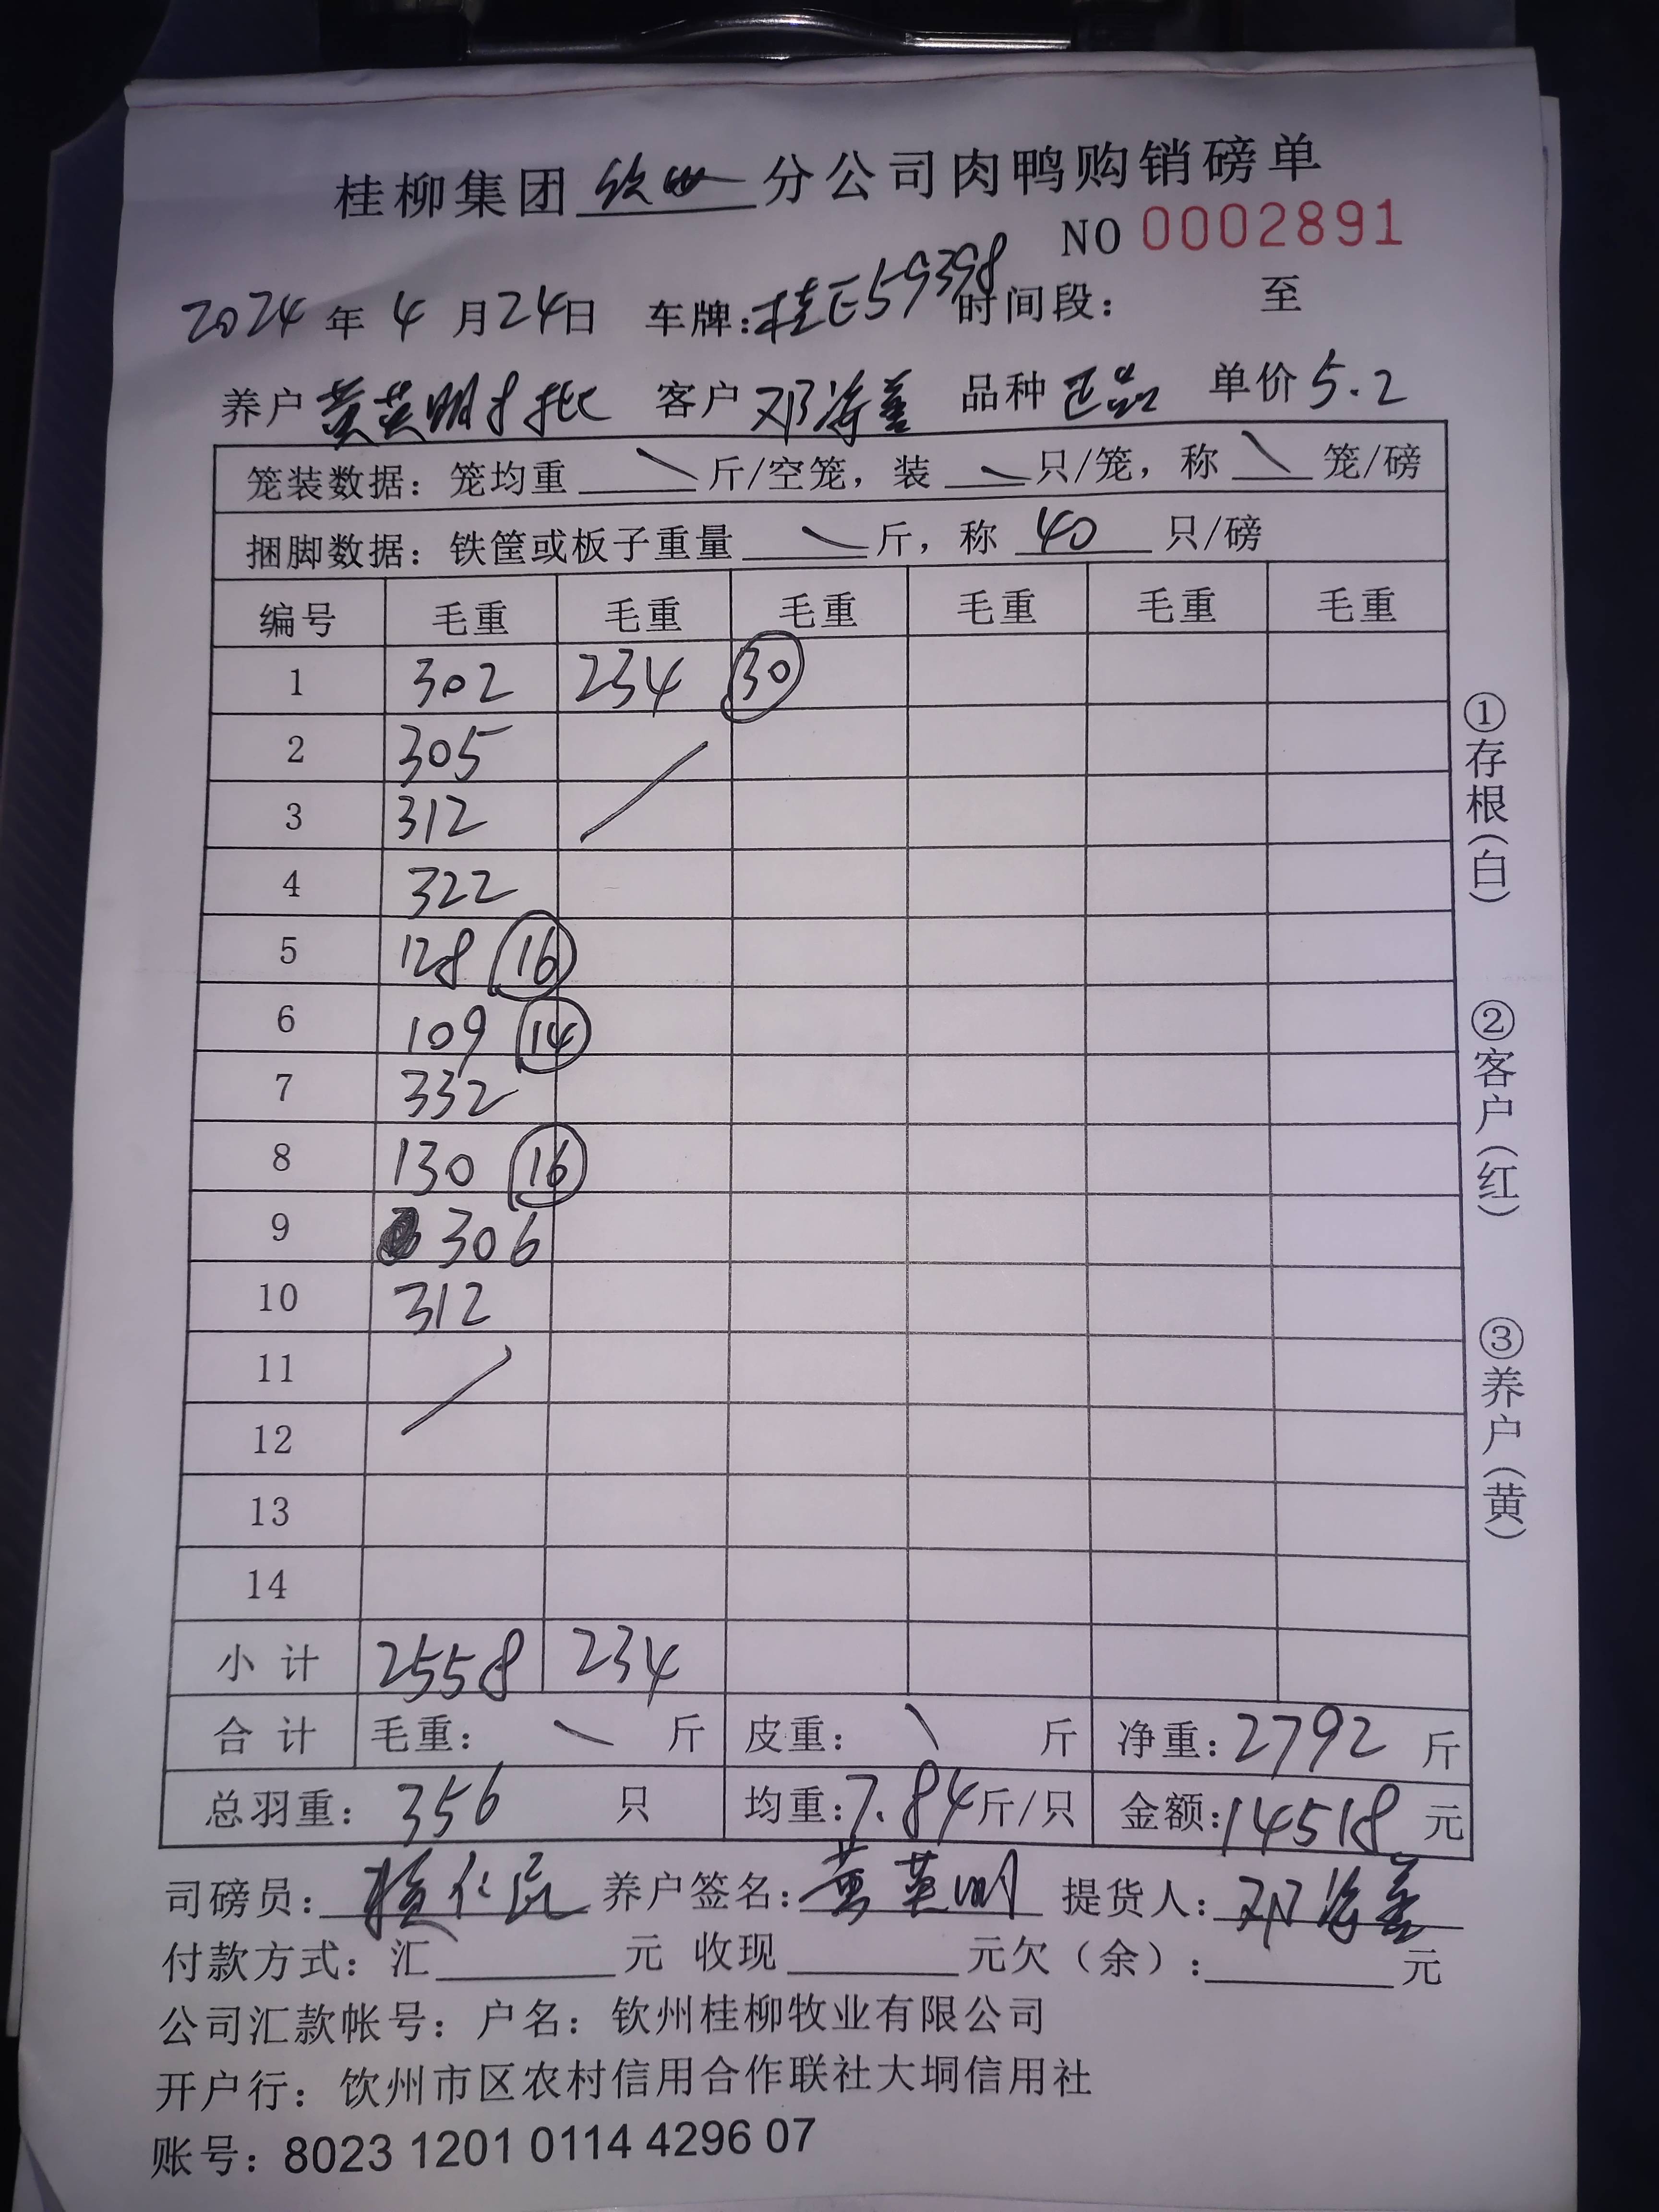 桂柳集团钦州分公司肉鸭购销磅单
NO 0002891
2024年4月24日 车牌:桂E59398 时间段: 至
养户 黄英明 批 客户 邓海 品种 正品 单价 5.2
笼装数据: 笼均重 \ 斤/空笼, 装 \ 只/笼, 称 \ 笼/磅
捆脚数据: 铁筐或板子重量 \ 斤, 称 40 只/磅
编号 毛重 毛重 毛重 毛重 毛重 毛重
1 302 234 30
2 305
3 312
4 322
5 128 16
6 109 14
7 332
8 130 16
9 306
10 312
11
12
13
14
小计 2558 234
合计 毛重: \ 斤 皮重: \ 斤 净重: 2792 斤
总羽重: 356 只 均重: 7.84 斤/只 金额: 14518 元
司磅员: 养户签名: 黄英明 提货人: 邓海
付款方式: 汇 元 收现 元欠(余): 元
公司汇款帐号: 户名: 钦州桂柳牧业有限公司
开户行: 饮州市区农村信用合作联社大垌信用社
账号: 8023 1201 0114 4296 07
①存根(白)
②客户(红)
③养户(黄)